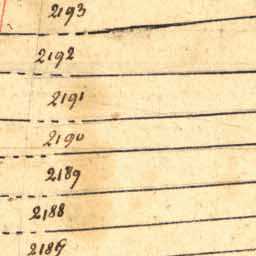 2193
2192
2191
2190
2189
2188